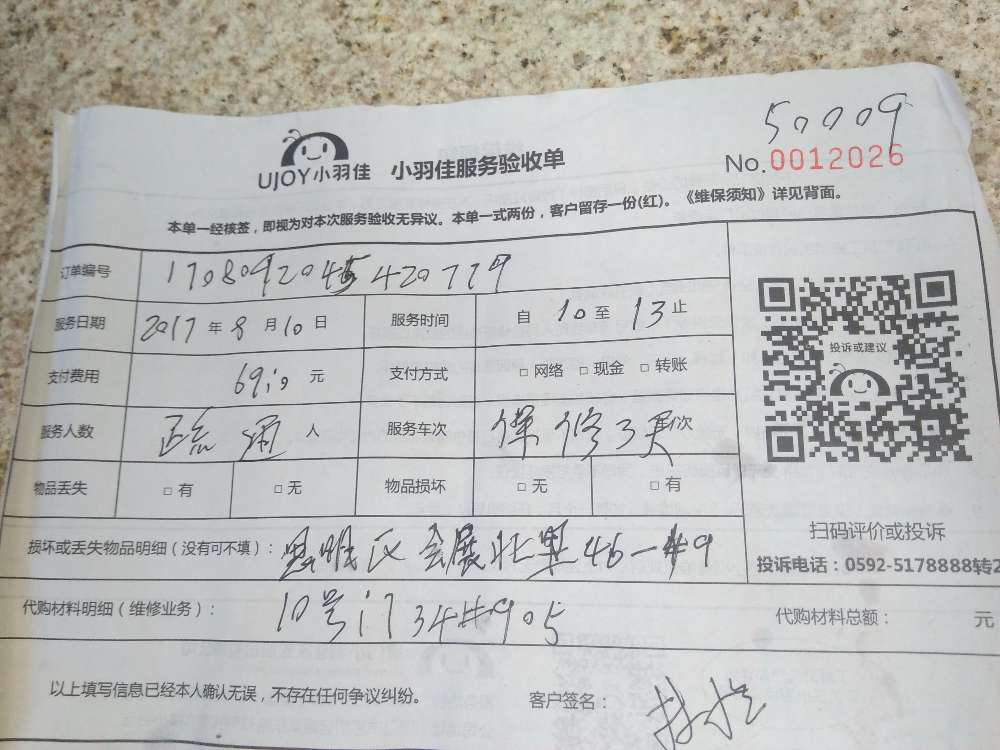 50009
UJOY小羽佳 小羽佳服务验收单 No.0012026
本单一经核签，即视为对本次服务验收无异议。本单一式两份，客户留存一份(红)。《维保须知》详见背面。
订单编号 170809204
420779
服务日期 2017年8月10日 服务时间 自10至13止
支付费用 69 元 支付方式 □网络 □现金 □转账
投诉或建议
服务人数 疏通 人 服务车次 保修3 次
物品丢失 □有 □无 物品损坏 □无 □有
扫码评价或投诉
损坏或丢失物品明细（没有可不填）： 思明区会展北里46-#9
投诉电话：0592-5178888转2
代购材料明细（维修业务）： 10号门34#905 代购材料总额： 元
以上填写信息已经本人确认无误，不存在任何争议纠纷。 客户签名：